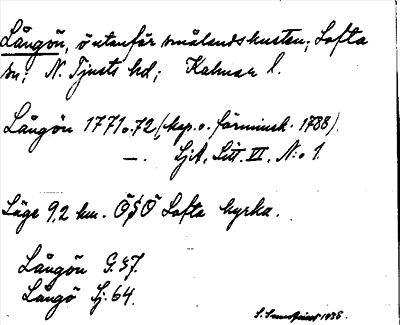 Långön, ö utanför smålandskusten; Lofta
sn; N. Tjusts hd; Kalmar l.
Långön 1771 o. 72 (kop. o. förminsk. 1788).
—. SjA, Litt. VI, N:o 1.
Läge 9,2 km. ÖSÖ Lofta kyrka.
Långön G. 57.
Långö Sj. 64.
1938.